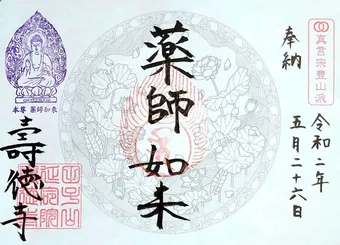 真言宗豊山派
奉納
令和二年
五月二十六日
薬師如来
本尊 薬師如来
壽徳寺